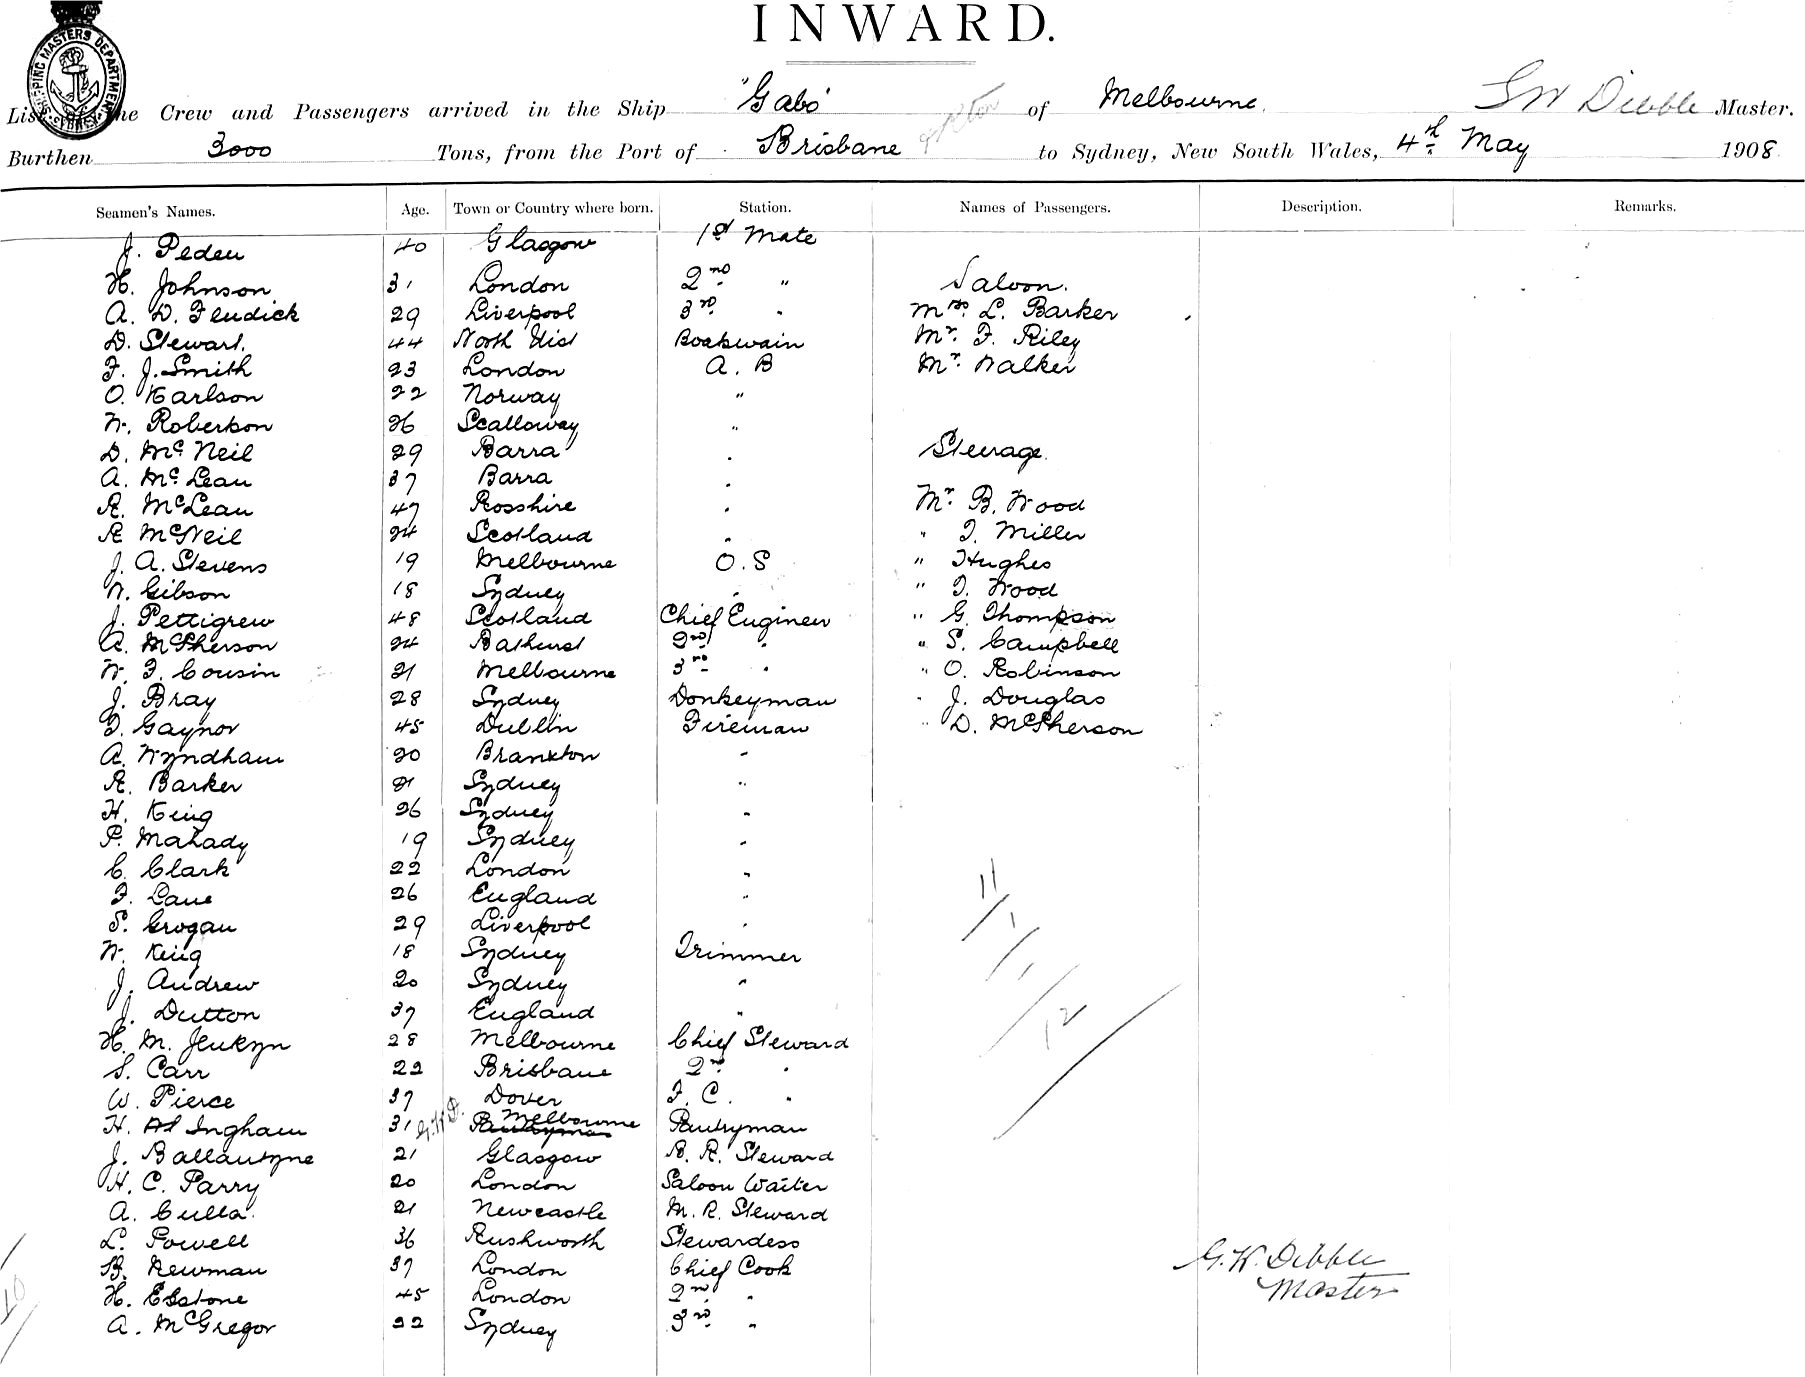 INWARD.
SHIPPING MASTERS DEPARTMENT SYDNEY
List of the Crew and Passengers arrived in the Ship "Gabo" of Melbourne. GW Dibble Master.
Burthen 3000 Tons, from the Port of Brisbane to Sydney, New South Wales, 4th May 1908
Seamen's Names. Age. Town or Country where born. Station. Names of Passengers. Description. Remarks.
J. Peden 40 Glasgow 1st Mate
H. Johnson 31 London 2nd " Saloon.
A. D. Fendick 29 Liverpool 3rd " Mrs. L. Barker
D. Stewart. 44 North Uist Boatswain Mr. F. Riley
F. J. Smith 23 London A. B Mr. Walker
O. Karlson 22 Norway "
W. Robertson 26 Scalloway "
D. McNeil 29 Barra " Steerage.
A. McLean 37 Barra "
R. McLean 47 Rosshire " Mr. B. Wood
R McNeil 24 Scotland " " T. Miller
J. A. Stevens 19 Melbourne O. S " Hughes
W. Gibson 18 Sydney " " T. Wood
J. Pettigrew 48 Scotland Chief Engineer " G. Thompson
A. McPherson 24 Bathurst 2nd " " S. Campbell
W. T. Cousin 21 Melbourne 3rd " " O. Robinson
J. Bray 28 Sydney Donkeyman " J. Douglas
T. Gaynor 45 Dublin Fireman " D. McPherson
A. Wyndham 20 Branxton "
R. Barker 21 Sydney "
H. King 26 Sydney "
P. Mahady 19 Sydney "
C. Clark 22 London "
F. Lane 26 England "
S. Grogan 29 Liverpool "
W. King 18 Sydney Trimmer
J. Andrew 20 Sydney "
J. Dutton 37 England "
H. M. Jenkyn 28 Melbourne Chief Steward
S. Carr 22 Brisbane 2nd "
W. Pierce 37 Dover F. C. "
H. Ingham 31 G.W.D. Melbourne Pantryman
J. Ballantyne 21 Glasgow B. R. Steward
H. C. Parry 20 London Saloon Waiter
A. Culla. 21 Newcastle M. R. Steward
L. Powell 36 Rushworth Stewardess
B. Newman 37 London Chief Cook
H. Elstone 45 London 2nd "
A. McGregor 22 Sydney 3rd "
11/1/1/12
G. W. Dibble
Master
10